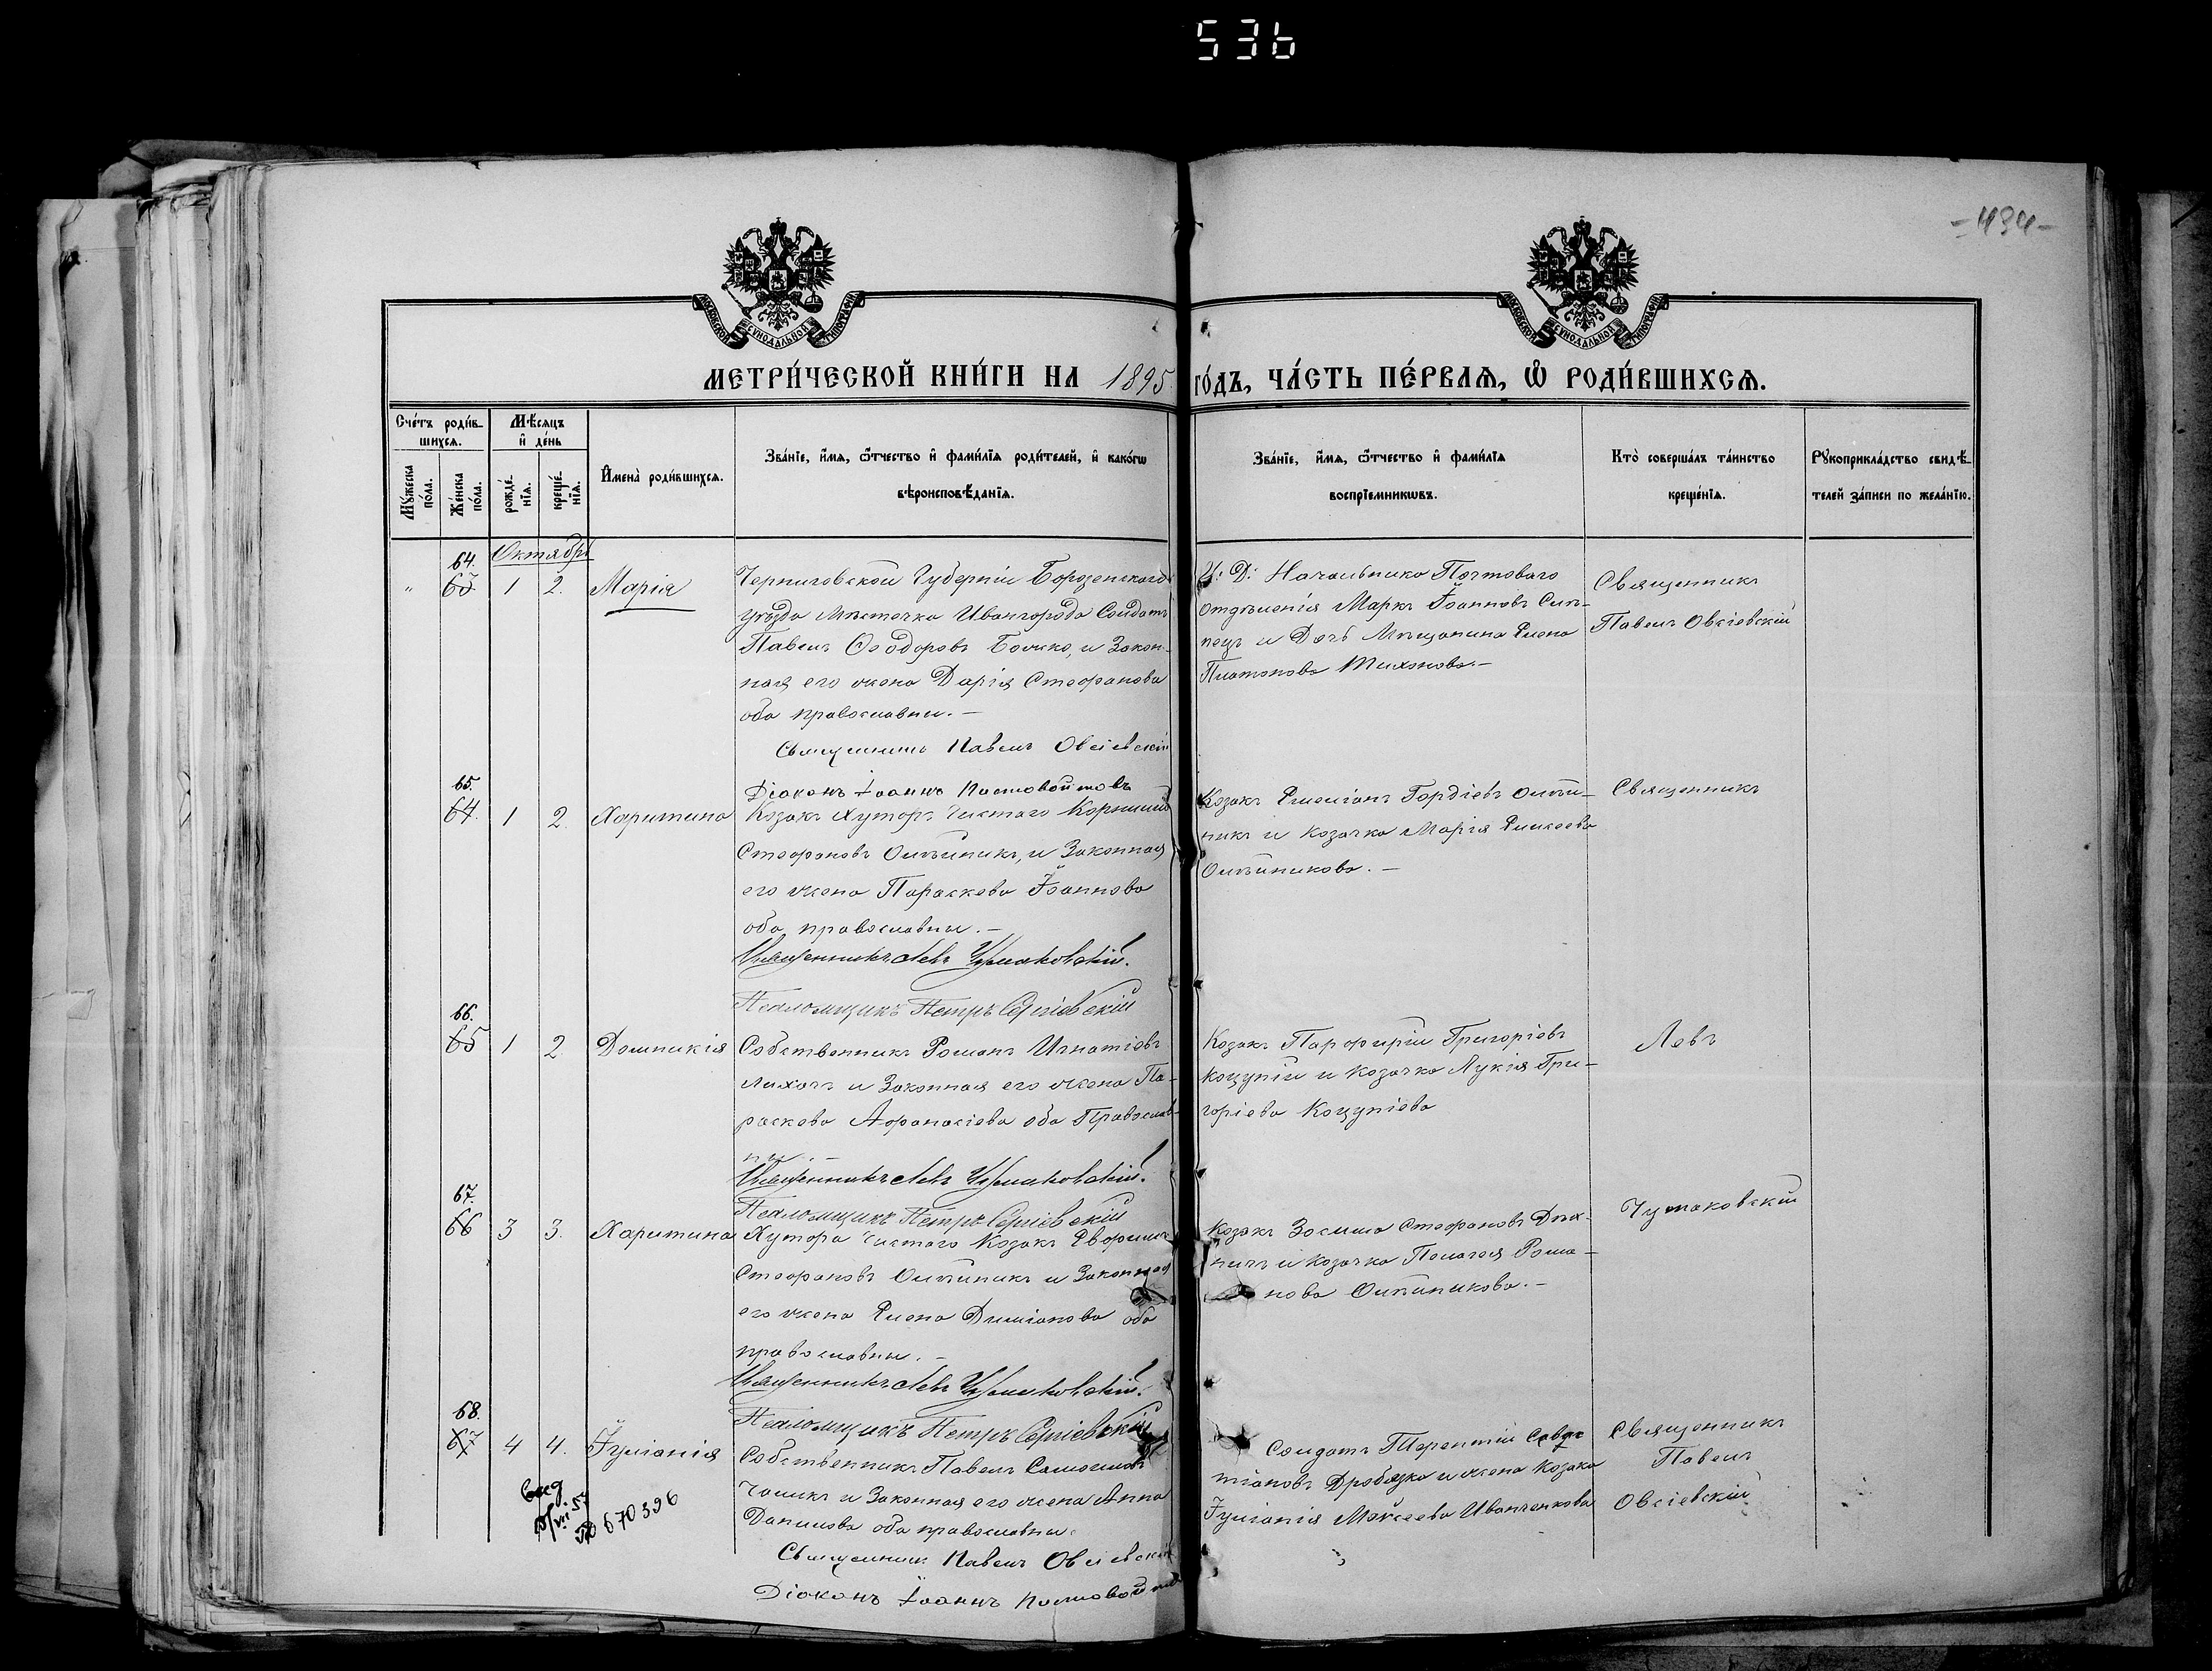 536
-494-
МЕТРИ́ЧЕСКОЙ КНИ́ГИ НА 1895 ГО́ДЪ, ЧА́СТЬ ПЕ́РВАЯ, Ѿ РОДИ́ВШИХСЯ.
Сче́тъ роди́в-
шихся.
Мѣ́сяцъ
и҆ де́нь
Мꙋ́жеска
по́ла.
Же́нска
по́ла.
рожде́-
нїя.
креще́-
нїя.
И҆мена̀ роди́вшихся.
Зва́нїе, и҆́мя, ѻ҆́тчество и҆ фами́лїя роди́телей, и҆ како́гѡ
вѣроисповѣ́данїя.
Зва́нїе, и҆́мя, ѻ҆́тчество и҆ фами́лїя
воспрїе́мникѡвъ.
Кто̀ соверша́лъ та́инство
креще́нїя.
Рꙋкоприкла́дство свидѣ́-
телей за́писи по жела́нїю.
Октябрь
64.
63 1 2. Марія
Черниговской Губерніи Борзенского
уѣзда Мѣстечка Ивангорода Солдатъ
Павелъ Ѳеодоровъ и Закон-
ная его жена Дарія Стефанова
оба православны. —
Священникъ Павелъ Овсіевскій
Діаконъ Іоаннъ
И: Д: Начальника Почтоваго
Отдѣленія Маркъ Іоанновъ Слѣ-
пецъ и Дочь Мѣщанина Елена
Платонова Тихонова. —
Священникъ
Павелъ Овсіевскій
65.
64. 1 2. Харитина
Козакъ Хутора Чистаго Корнилій
Стефановъ Олѣйникъ, и Законная
его жена Параскева Іоаннова
оба православны. —
Священникъ Левъ Чумаковскій.
Псаломщикъ Петръ Сергіевскій
Козакъ Емеліанъ Гордіевъ Олѣй-
никъ и Козачка Марія Елисеева
Олѣйникова. —
Священникъ
66.
65 1 2. Домникія
Собственникъ Романъ Игнатіевъ
Лихачъ и Законная его жена Па-
раскева Афанасіева оба Православ-
ны. —
Священникъ Левъ Чумаковскій.
Псаломщикъ Петръ Сергіевскій
Козакъ Парфирій Григоріевъ
Коцупій и Козачка Лукія Гри-
горіева Коцупіева
Левъ
67.
66 3 3. Харитина
Хутора Чистаго Козакъ Евфимъ
Стефановъ Олѣйникъ и Законная
его жена Елена Диміанова оба
православны. —
Священникъ Левъ Чумаковскій.
Псаломщикъ Петръ Сергіевскій
Козакъ Зосима Стефановъ Дях-
ничъ и Козачка Пелагея Рома-
нова Олѣйникова. —
Чумаковскій
68.
67 4 4. Іуліанія
Собственникъ Павелъ Самоиловъ
Чаликъ и Законная его жена Анна
Данилова оба православны.
Священникъ Павелъ Овсіевскій
Діаконъ Іоаннъ
Солдатъ Терентій Савас-
тіановъ Дробязко и жена Козака
Іуліанія Моѵсеева Иванченкова
Священникъ
Павелъ
Овсіевскій
670396